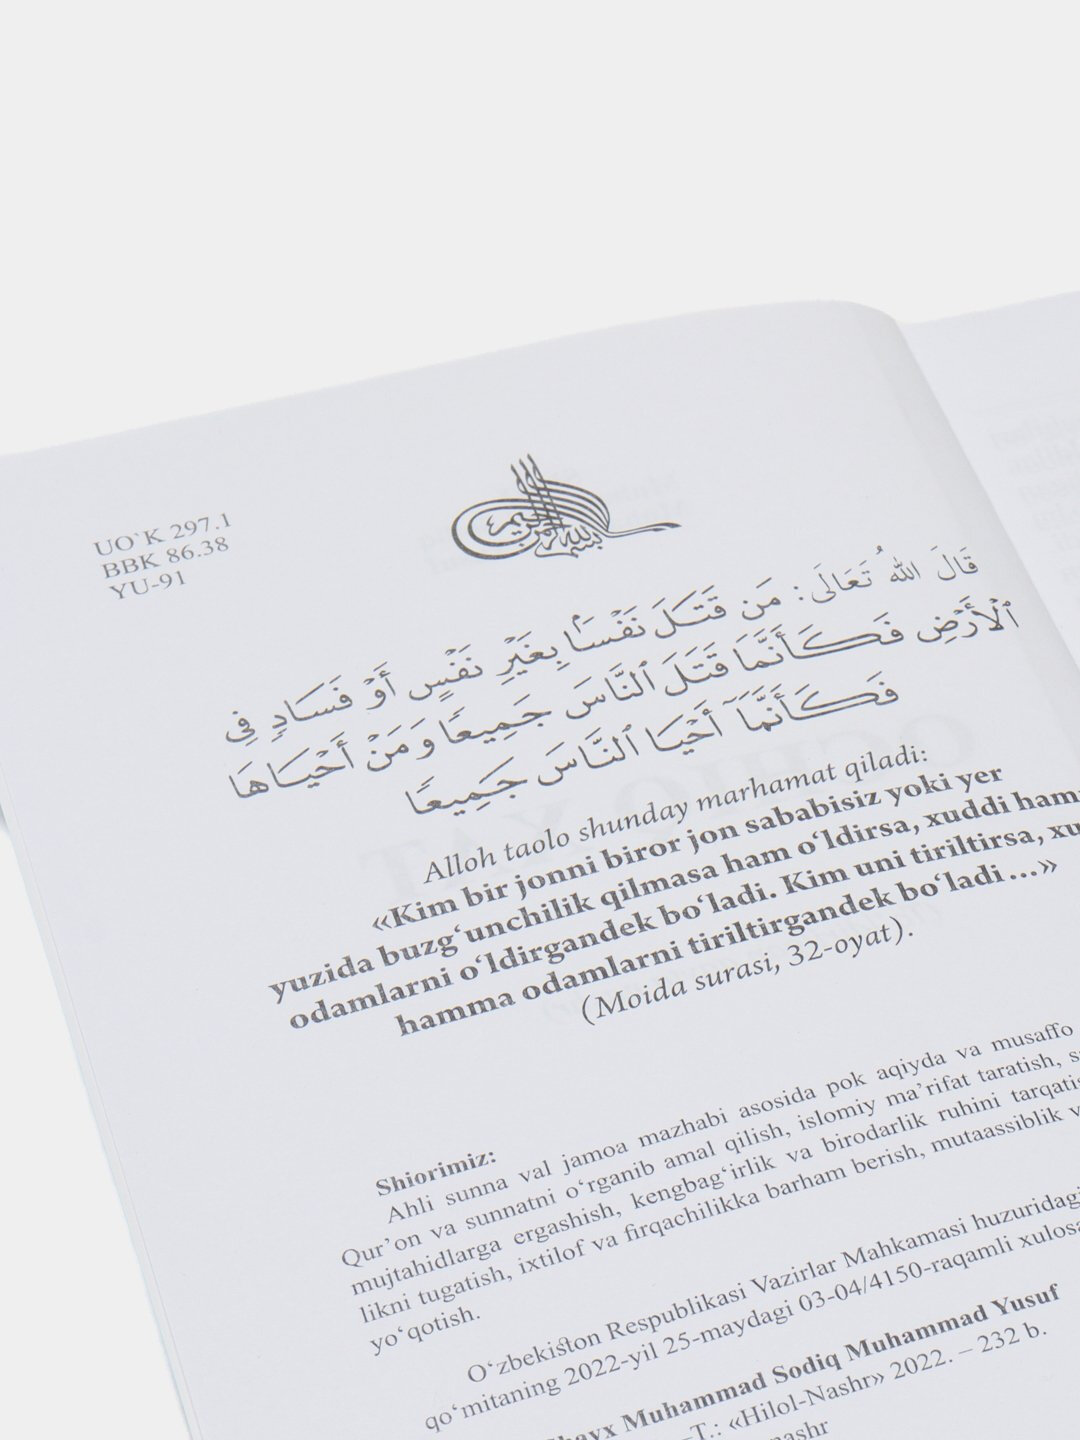 UO`K 297.1
BBK 86.38
YU-91
قَالَ اللهُ تَعَالَى: مَن قَتَلَ نَفْسًۢا بِغَيْرِ نَفْسٍ أَوْ فَسَادٍ فِى
ٱلْأَرْضِ فَكَأَنَّمَا قَتَلَ ٱلنَّاسَ جَمِيعًا وَمَنْ أَحْيَاهَا
فَكَأَنَّمَآ أَحْيَا ٱلنَّاسَ جَمِيعًا
Alloh taolo shunday marhamat qiladi:
«Kim bir jonni biror jon sababisiz yoki yer
yuzida buzg‘unchilik qilmasa ham o‘ldirsa, xuddi
odamlarni o‘ldirgandek bo‘ladi. Kim uni tiriltirsa,
hamma odamlarni tiriltirgandek bo‘ladi ...»
(Moida surasi, 32-oyat).
Shiorimiz:
Ahli sunna val jamoa mazhabi asosida pok aqiyda va musaffo
Qur’on va sunnatni o‘rganib amal qilish, islomiy ma’rifat taratish,
mujtahidlarga ergashish, kengbag‘irlik va birodarlik ruhini
likni tugatish, ixtilof va firqachilikka barham berish, mutaassiblik
yo‘qotish.
O‘zbekiston Respublikasi Vazirlar Mahkamasi huzuridagi
qo‘mitaning 2022-yil 25-maydagi 03-04/4150-raqamli
Shayx Muhammad Sodiq Muhammad Yusuf
–T.: «Hilol-Nashr» 2022. – 232 b.